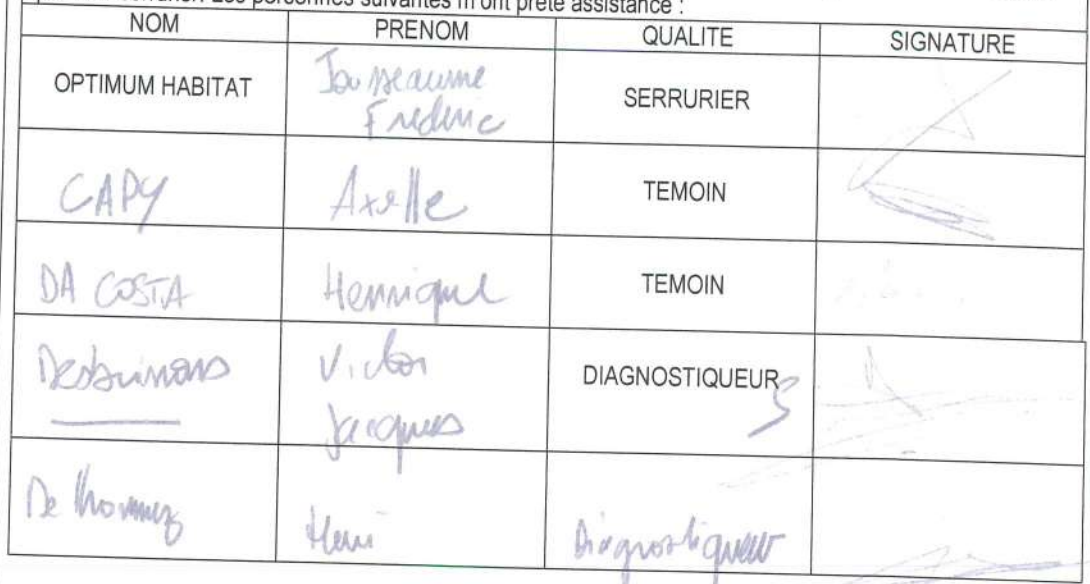 Les personnes suivantes m'ont prêté assistance :
NOM PRENOM QUALITE SIGNATURE
OPTIMUM HABITAT Frederic SERRURIER
CAPY Axelle TEMOIN
DA COSTA Henrique TEMOIN
Victor
Jacques DIAGNOSTIQUEURS
Henri Diagnostiqueur